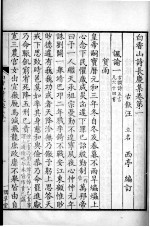 白香山詩長慶集卷第一
古歙汪立名西亭編訂
諷諭一
古調詩五言
凡六十四首
賀雨
皇帝嗣寶曆元和三年冬自冬及春暮不雨旱爞爞上
心念下民懼歲成災凶遂下罪己詔殷勤告萬邦帝曰
予一人繼天承祖宗憂勤不遑寧夙夜心忡忡元年誅
劉闢一舉靖巴邛二年戮李錡不戰安江東顧惟眇眇
德遽有巍巍功或者天降沴無乃儆予躬上思答天
戒下思致時邕莫如率其身慈和與儉恭乃命罷進獻
乃命賑饑窮宥死降五刑
寬三農宮女出宣徽廄馬減飛龍庶政靡不舉皆出